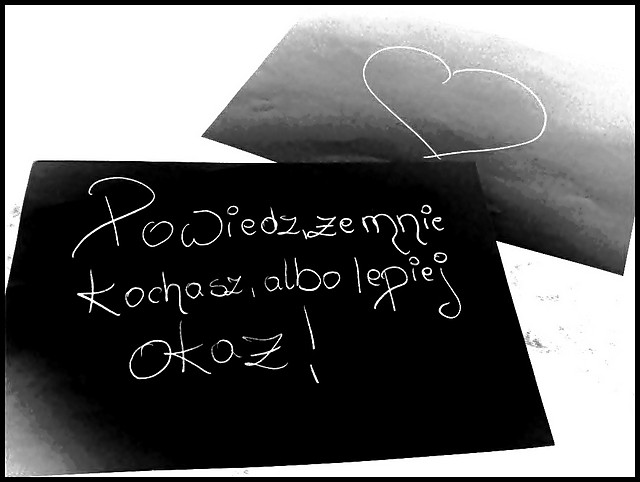 Powiedz, że mnie
kochasz, albo lepiej
okaż!